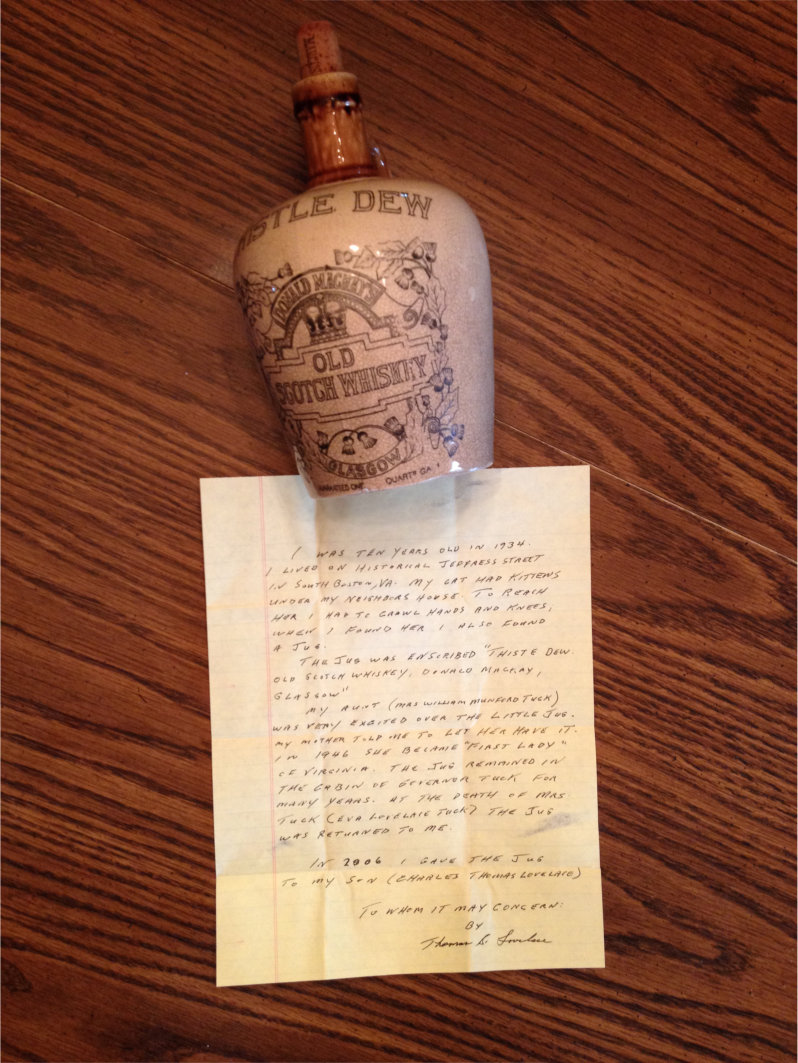 ISTLE DEW
DONALD MACKAY'S
OLD
SCOTCH WHISKEY
GLASGOW
QUART
I WAS TEN YEARS OLD IN 1934.
I LIVED ON HISTORICAL JEFFRESS STREET
IN SOUTH BOSTON, VA. MY CAT HAD KITTENS
UNDER MY NEIGHBORS HOUSE. TO REACH
HER I HAD TO CRAWL HANDS AND KNEES;
WHEN I FOUND HER I ALSO FOUND
A JUG.
THE JUG WAS ENSCRIBED "THISTE DEW.
OLD SCOTCH WHISKEY, DONALD MACKAY,
GLASGOW"
MY AUNT (MRS WILLIAM MUNFORD TUCK)
WAS VERY EXCITED OVER THE LITTLE JUG.
MY MOTHER TOLD ME TO LET HER HAVE IT.
IN 1946 SHE BECAME "FIRST LADY"
OF VIRGINIA. THE JUG REMAINED IN
THE CABIN OF GOVERNOR TUCK FOR
MANY YEARS. AT THE DEATH OF MRS
TUCK (EVA LOVELACE TUCK) THE JUG
WAS RETURNED TO ME.
IN 2006 I GAVE THE JUG
TO MY SON (CHARLES THOMAS LOVELACE)
TO WHOM IT MAY CONCERN:
BY
Thomas B. Lovelace